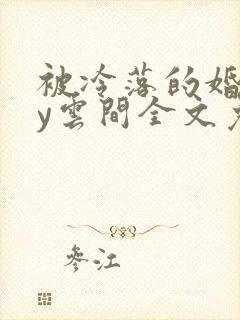 被冷落的婚
y雲間全文
參江